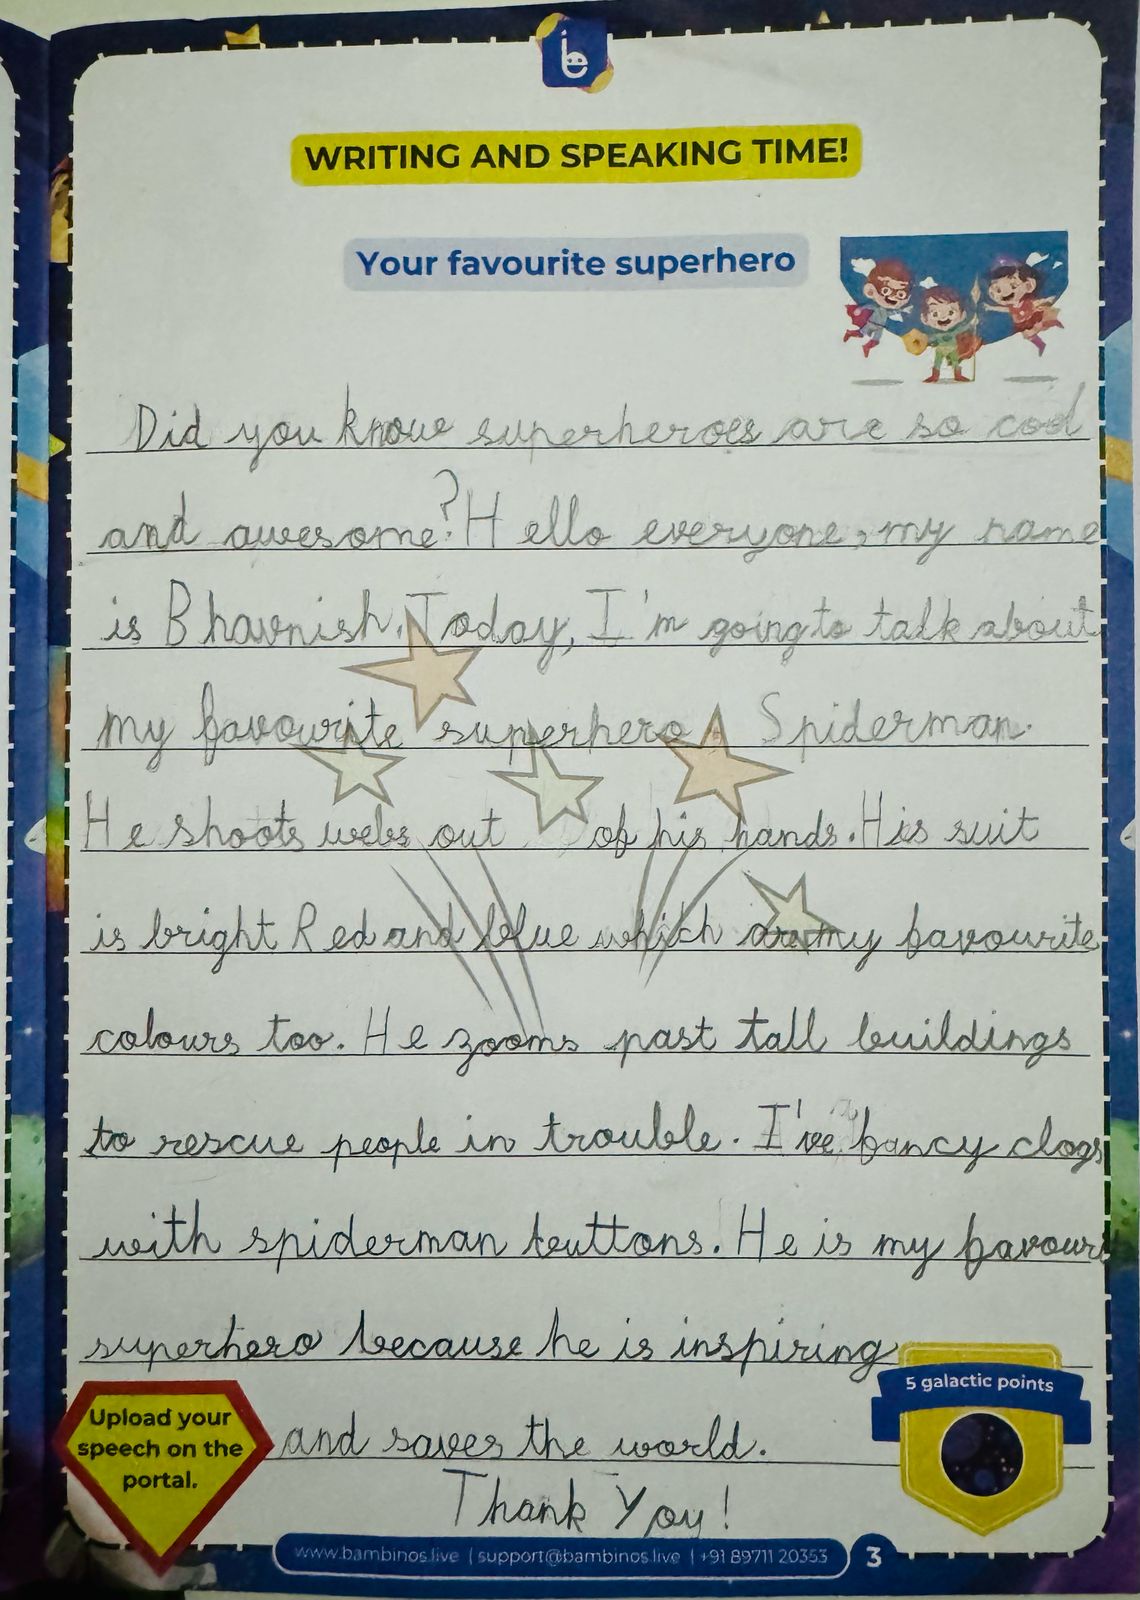 WRITING AND SPEAKING TIME!
Your favourite superhero
Did you know superheroes are so cool
and awesome? Hello everyone, my name
is Bhavnish. Today, I'm going to talk about
my favourite superhero, Spiderman.
He shoots webs out of his hands. His suit
is bright Red and blue which are my favourite
colours too. He zooms past tall buildings
to rescue people in trouble. I've fancy clogs
with spiderman buttons. He is my favouri
superhero because he is inspiring
5 galactic points
Upload your
speech on the
portal.
and saves the world.
Thank You!
www.bambinos.live | support@bambinos.live | +91 89711 20353
3